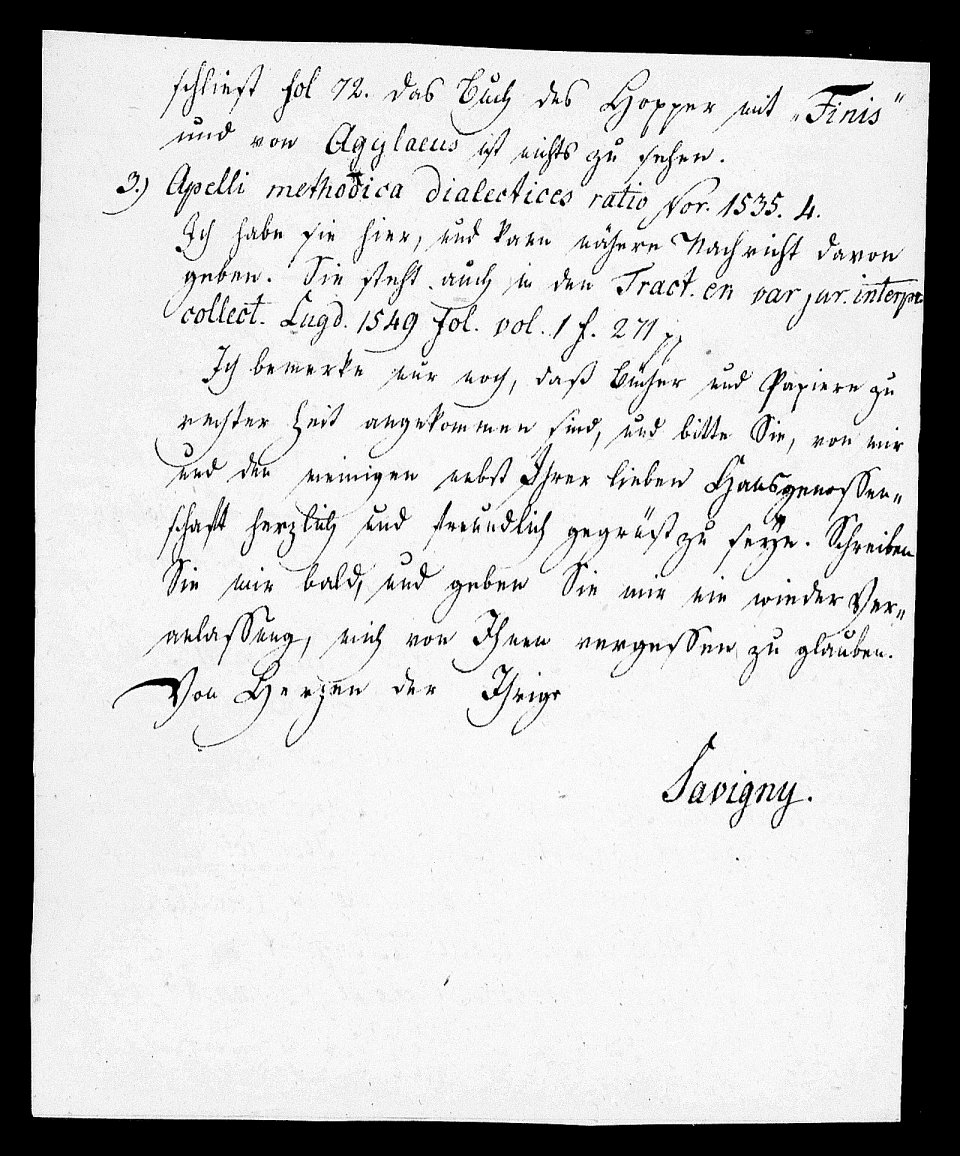 schließt fol 72. das Buch des Hopper mit „Finis“
und von Agylaeus ist nichts zu sehen.
3.) Apelli methodica dialectices ratio Nor. 1535. 4.
Ich habe sie hier, und kann nähere Nachricht davon
geben. Sie steht auch in den Tract. ex var jur. interpr.
collect. Lugd. 1549 fol. vol. 1 f. 271
Ich bemerke nur noch, daß Bücher und Papiere zu
rechter Zeit angekommen sind, und bitte Sie, von mir
und den meinigen nebst Ihrer lieben Hausgenossen-
schaft herzlich und freundlich gegrüßt zu seyn. Schreiben
Sie mir bald, und geben Sie mir nie wieder Ver-
anlassung, mich von Ihnen vergessen zu glauben.
Von Herzen der Ihrige
Savigny.